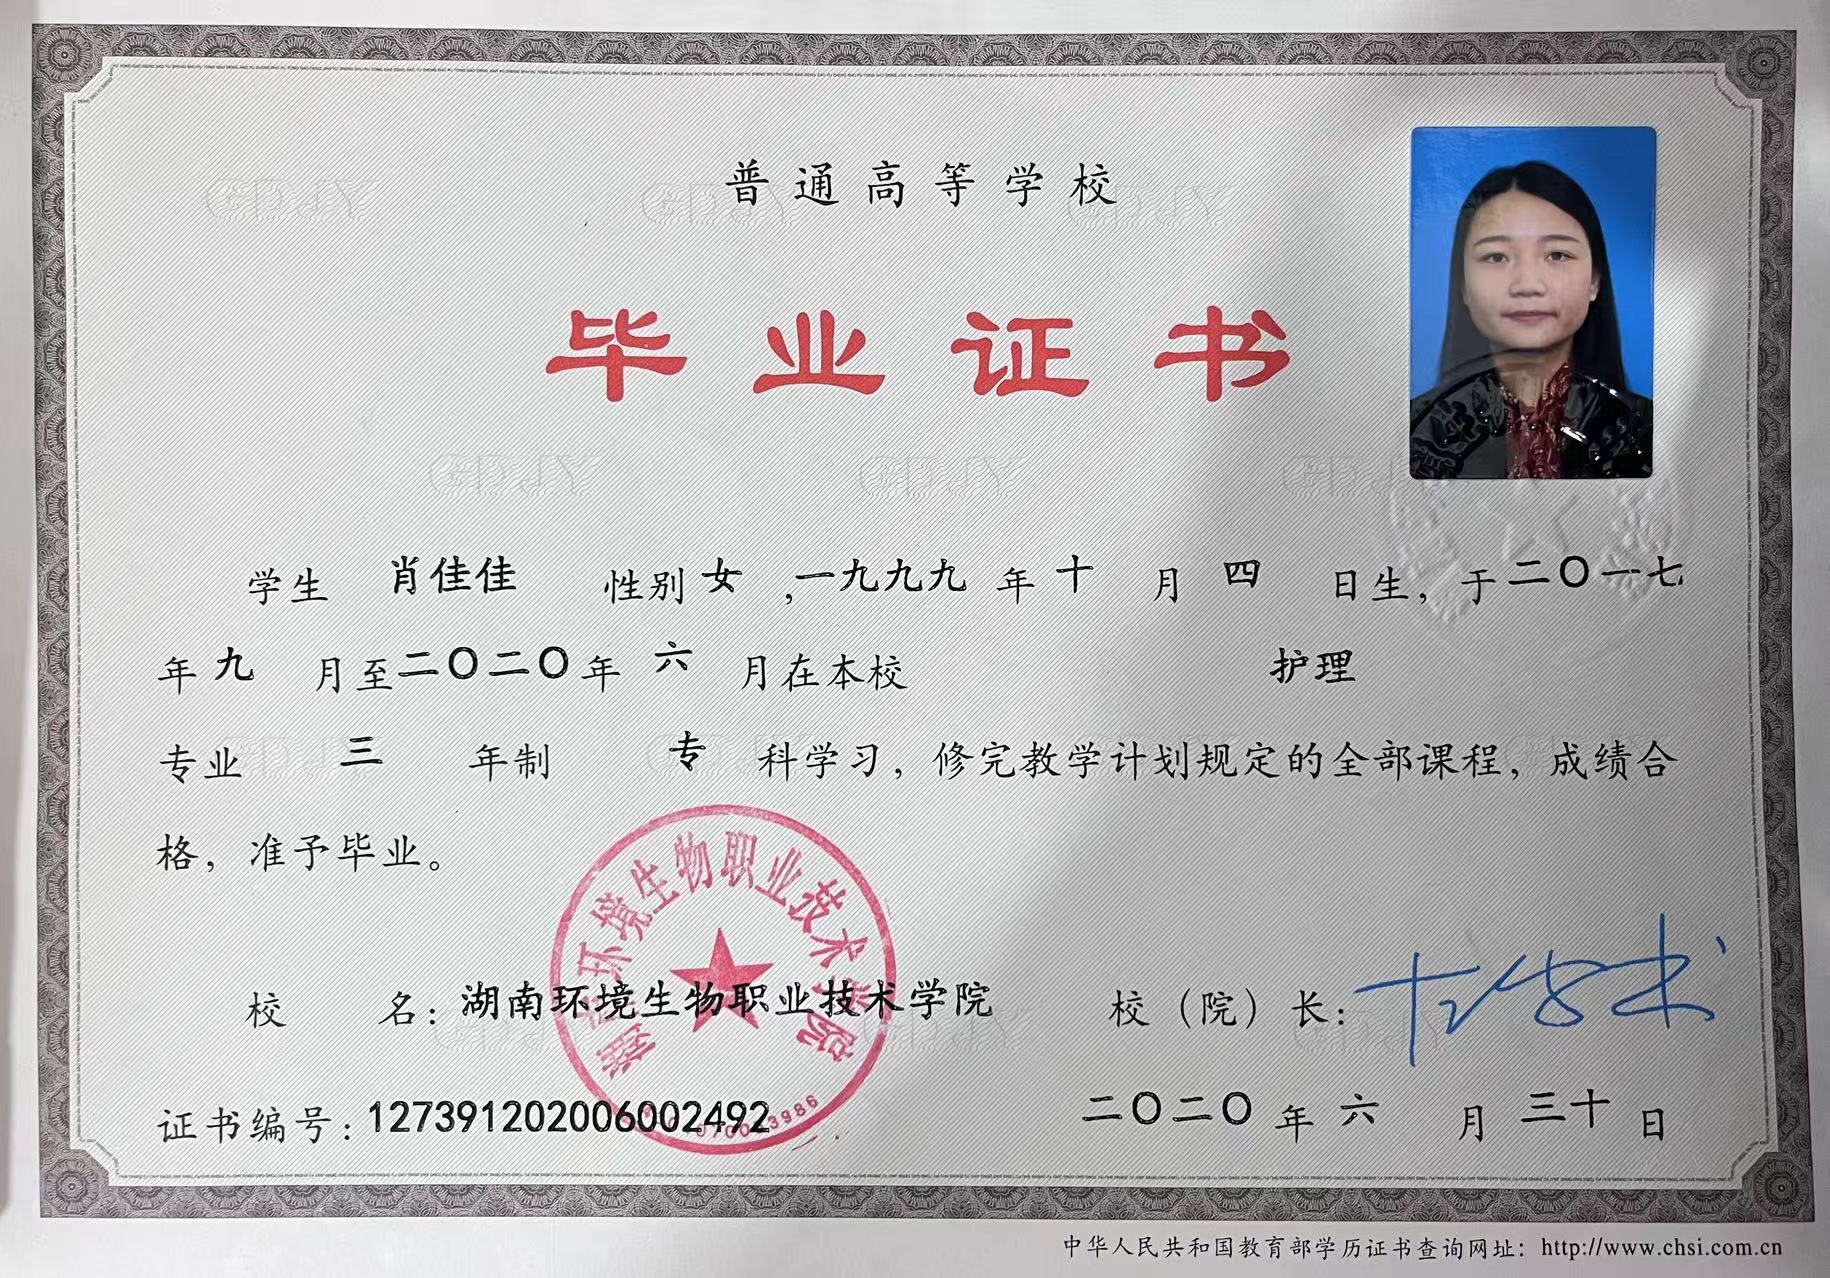 普通高等学校
毕业证书
学生 肖佳佳 性别 女 ，一九九九 年 十 月 四 日生，于 二〇一七
年 九 月至 二〇二〇 年 六 月在本校 护理
专业 三 年制 专 科学习，修完教学计划规定的全部课程，成绩合
格，准予毕业。
湖南环境生物职业技术学院
校 名：湖南环境生物职业技术学院 校（院）长：
证书编号：127391202006002492 二〇二〇 年 六 月 三十 日
中华人民共和国教育部学历证书查询网址：http://www.chsi.com.cn